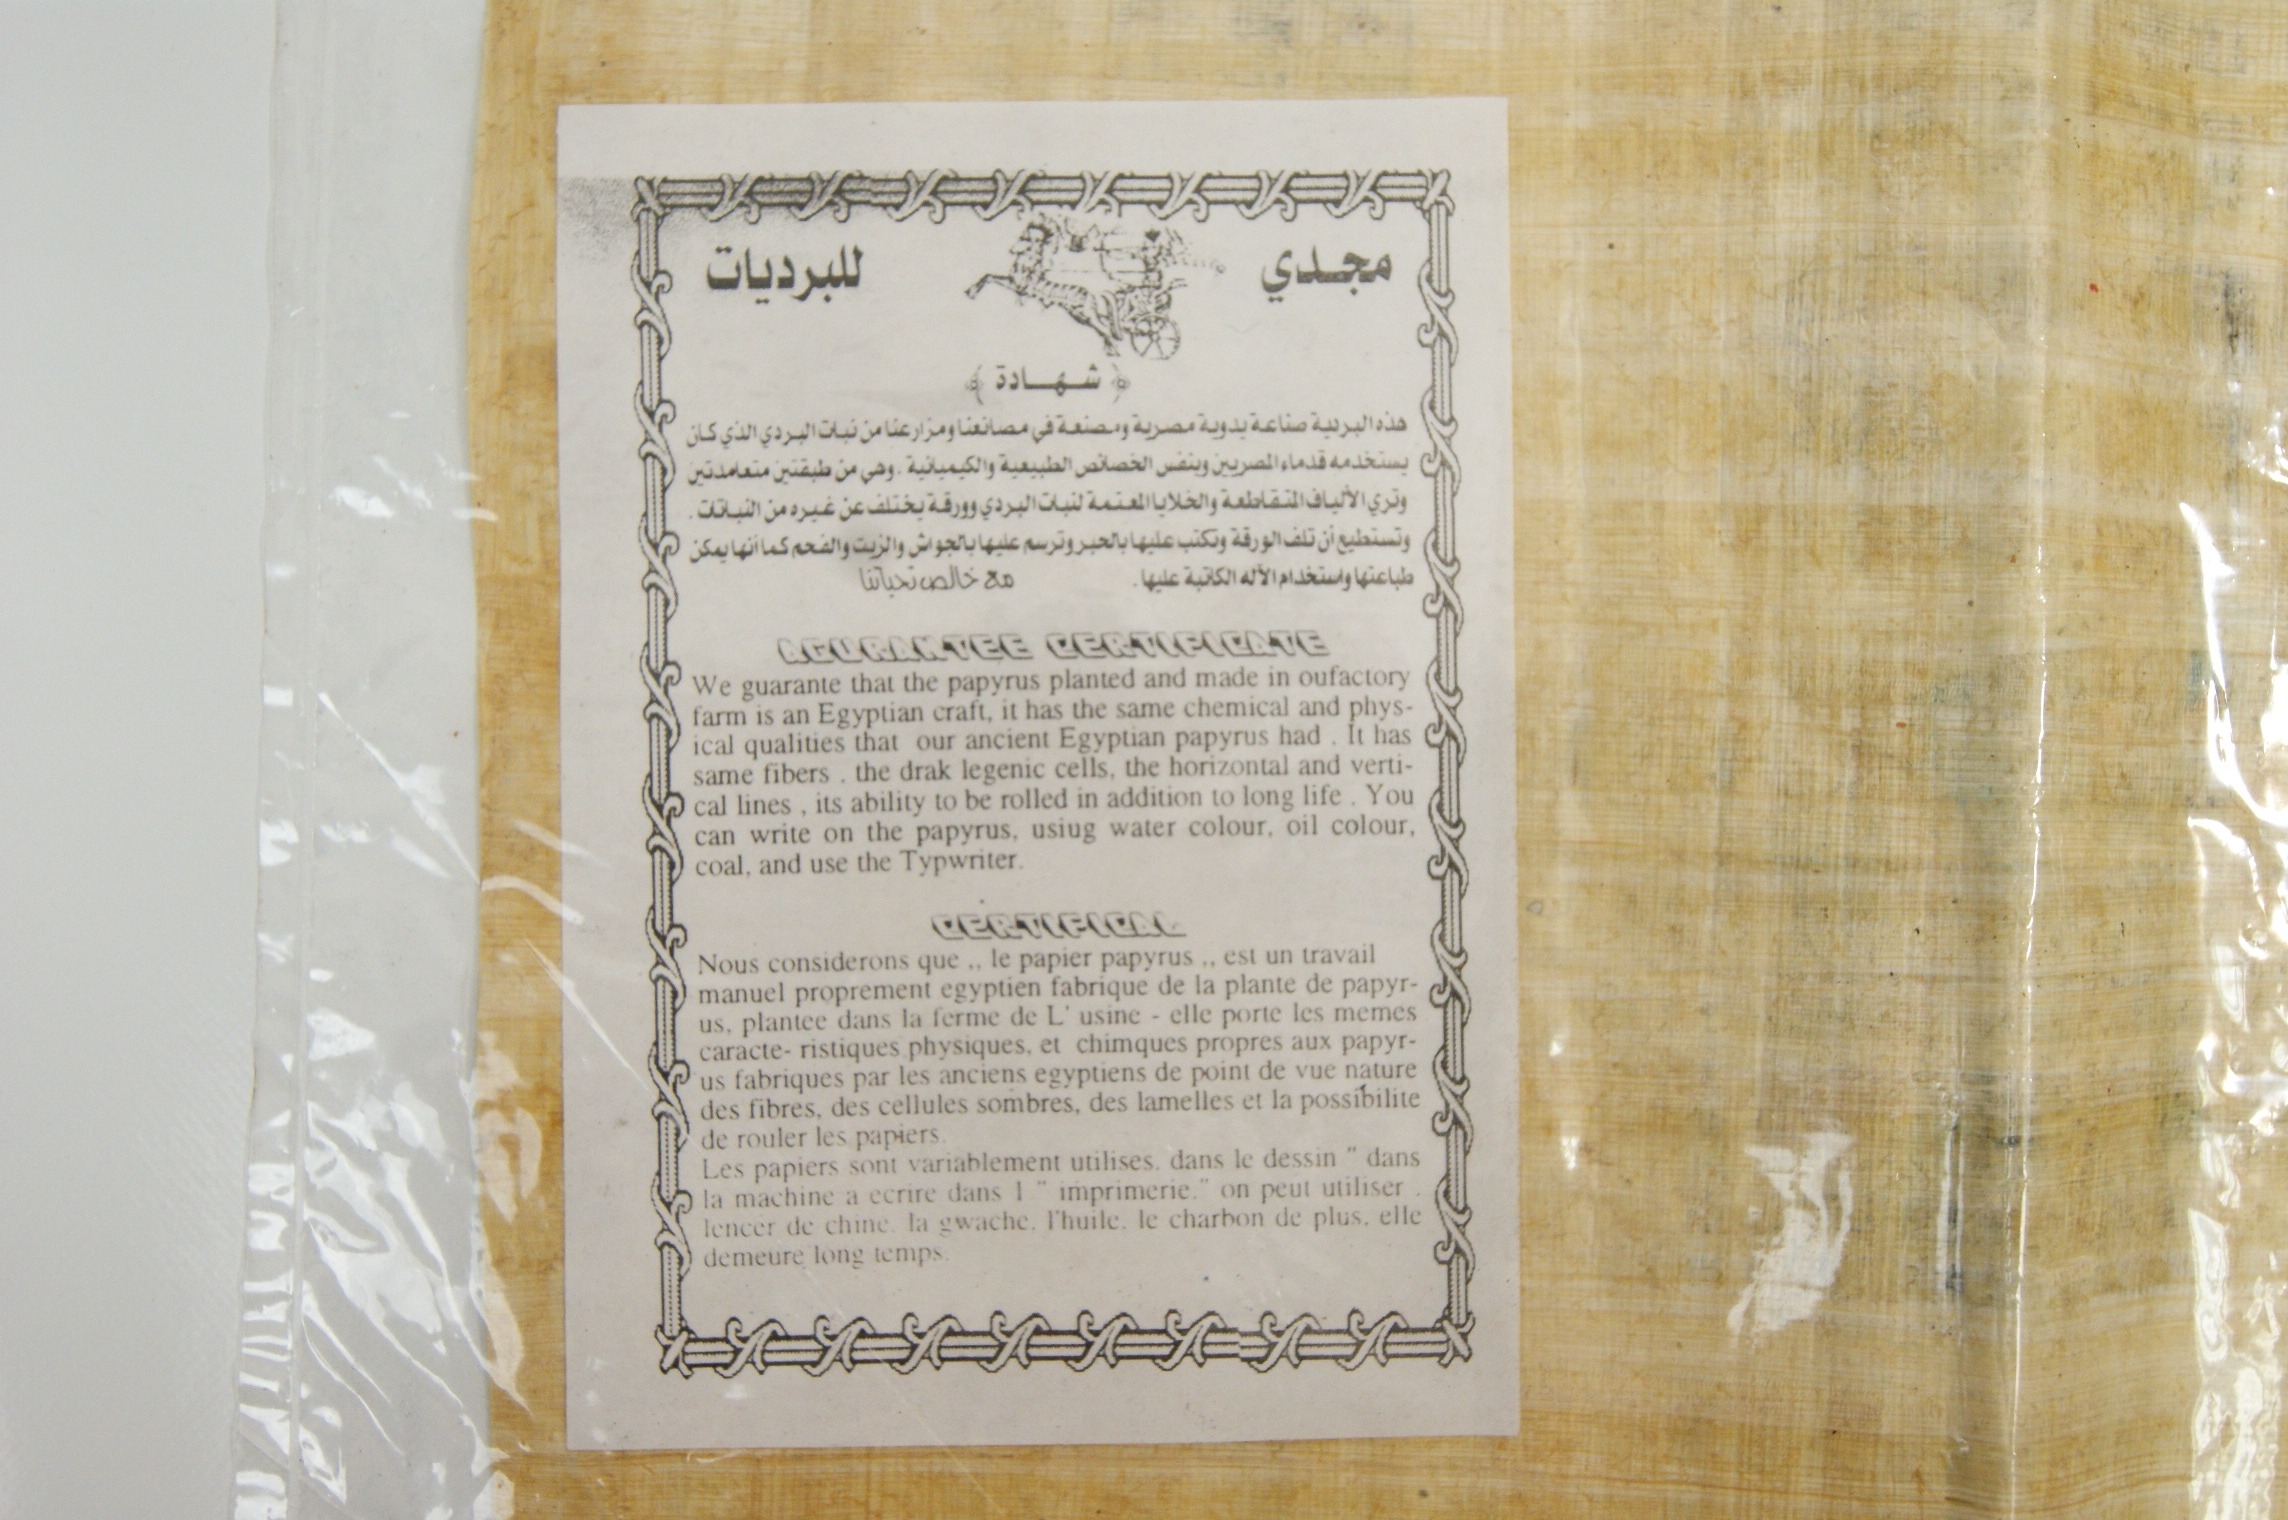 مجدي للبرديات
﴿ شهادة ﴾
هذه البردية صناعة يدوية مصرية ومصنعة في مصانعنا ومزارعنا من نبات البردي الذي كان
يستخدمه قدماء المصريين وبنفس الخصائص الطبيعية والكيميائية . وهي من طبقتين متعامدتين
وتري الألياف المتقاطعة والخلايا المعتمة لنبات البردي وورقة يختلف عن غيره من النباتات .
وتستطيع أن تلف الورقة وتكتب عليها بالحبر وترسم عليها بالجواش والزيت والفحم كما أنها يمكن
طباعتها واستخدام الأله الكاتبة عليها . مع خالص تحياتنا
AGURANTEE CERTIFICATE
We guarante that the papyrus planted and made in oufactory
farm is an Egyptian craft, it has the same chemical and phys-
ical qualities that our ancient Egyptian papyrus had . It has
same fibers . the drak legenic cells, the horizontal and verti-
cal lines , its ability to be rolled in addition to long life . You
can write on the papyrus, usiug water colour, oil colour,
coal, and use the Typwriter.
CERTIFICAL
Nous considerons que ,, le papier papyrus ,, est un travail
manuel proprement egyptien fabrique de la plante de papyr-
us, plantee dans la ferme de L' usine - elle porte les memes
caracte- ristiques physiques, et chimques propres aux papyr-
us fabriques par les anciens egyptiens de point de vue nature
des fibres, des cellules sombres, des lamelles et la possibilite
de rouler les papiers.
Les papiers sont variablement utilises. dans le dessin " dans
la machine a ecrire dans l " imprimerie." on peut utiliser .
lencer de chine. la gwache. l'huile. le charbon de plus, elle
demeure long temps.